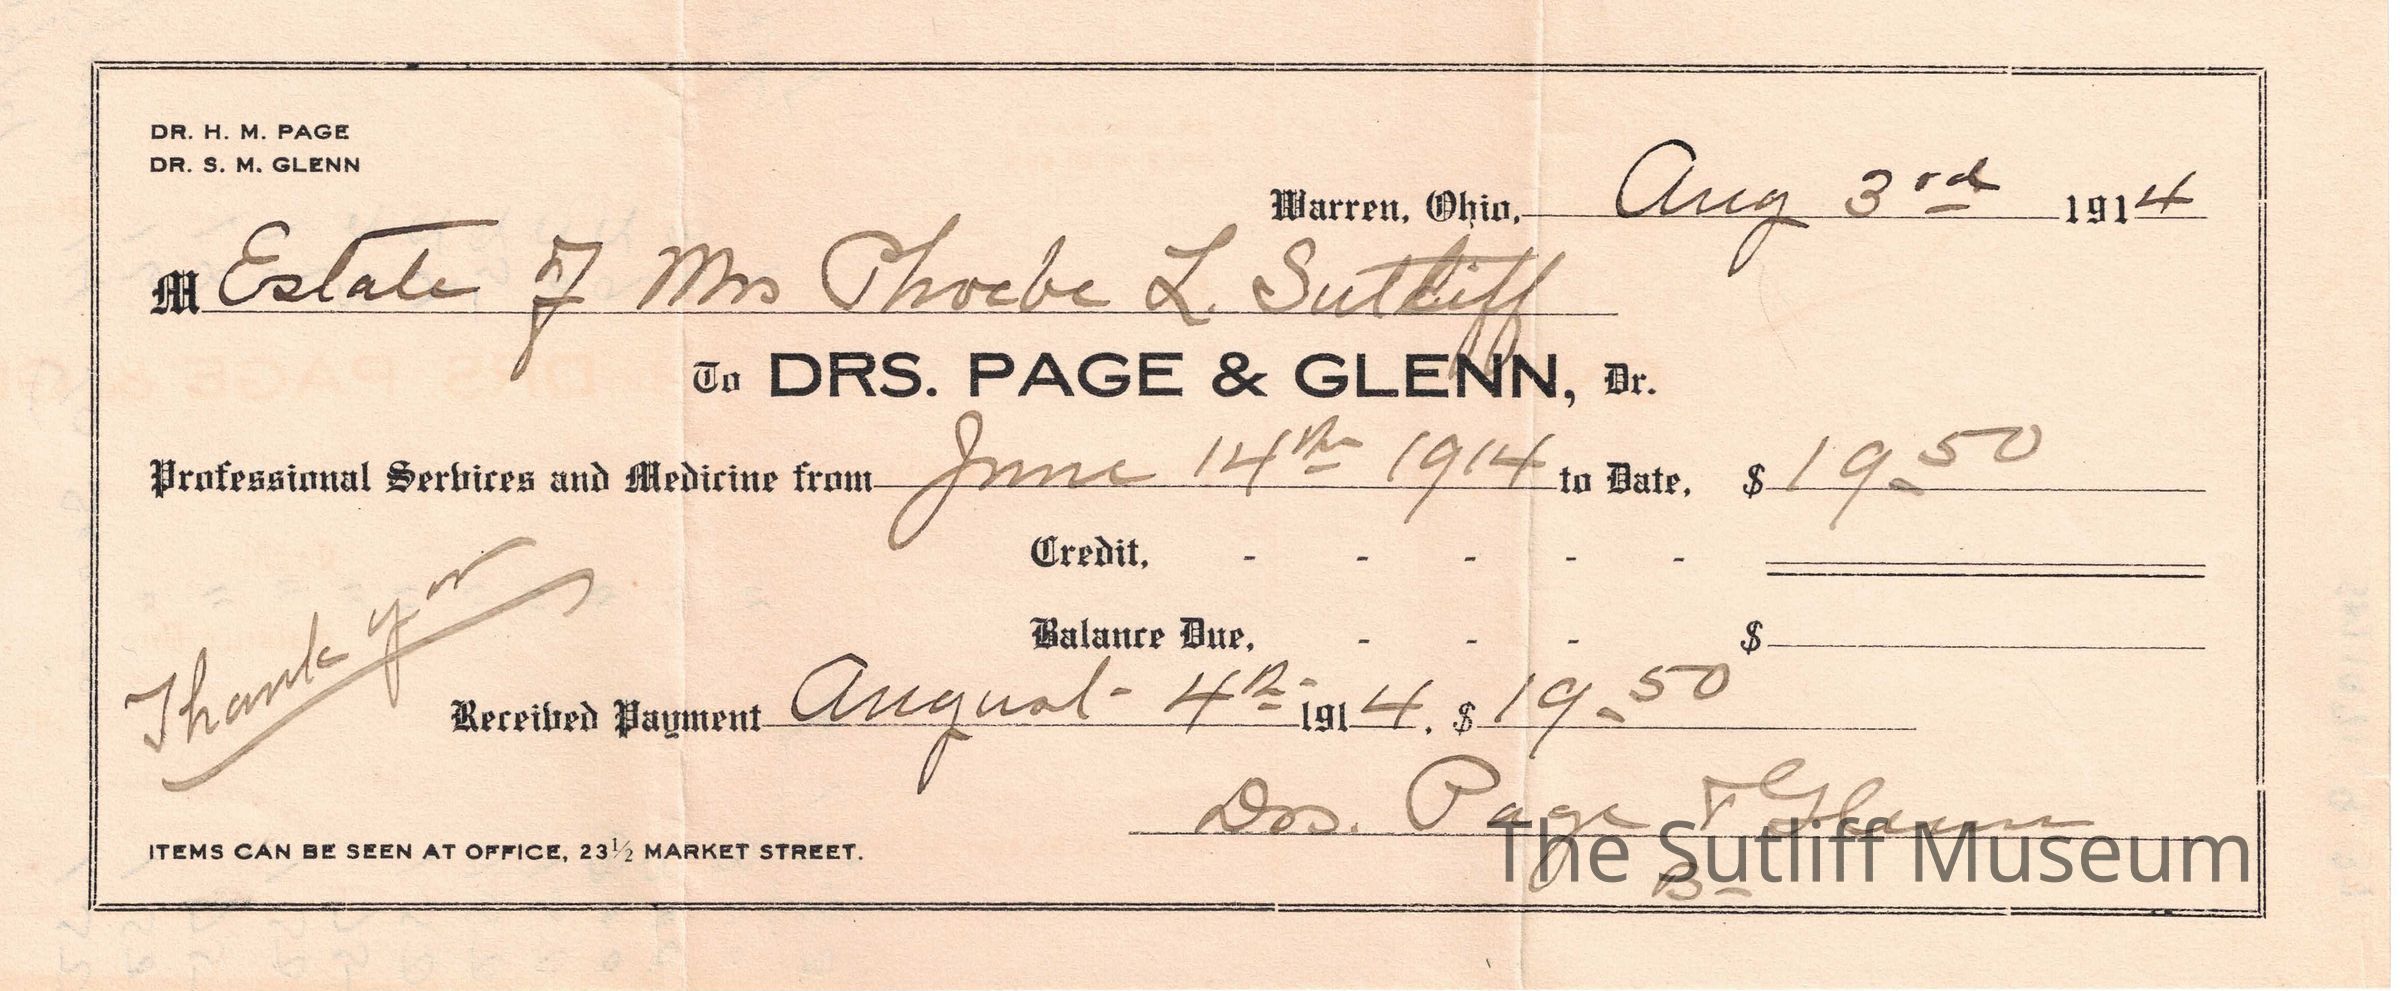 DR. H. M. PAGE
DR. S. M. GLENN
Warren, Ohio, Aug 3rd 1914
M Estate of Mrs Phoebe L. Sutliff
To DRS. PAGE & GLENN, Dr.
Professional Services and Medicine from June 14th 1914 to Date, $ 19.50
Credit, - - - - -
Balance Due, - - - $
Thank you
Received Payment August 4th 1914, $ 19.50
Drs. Page & Glenn
ITEMS CAN BE SEEN AT OFFICE, 23½ MARKET STREET.
The Sutliff Museum